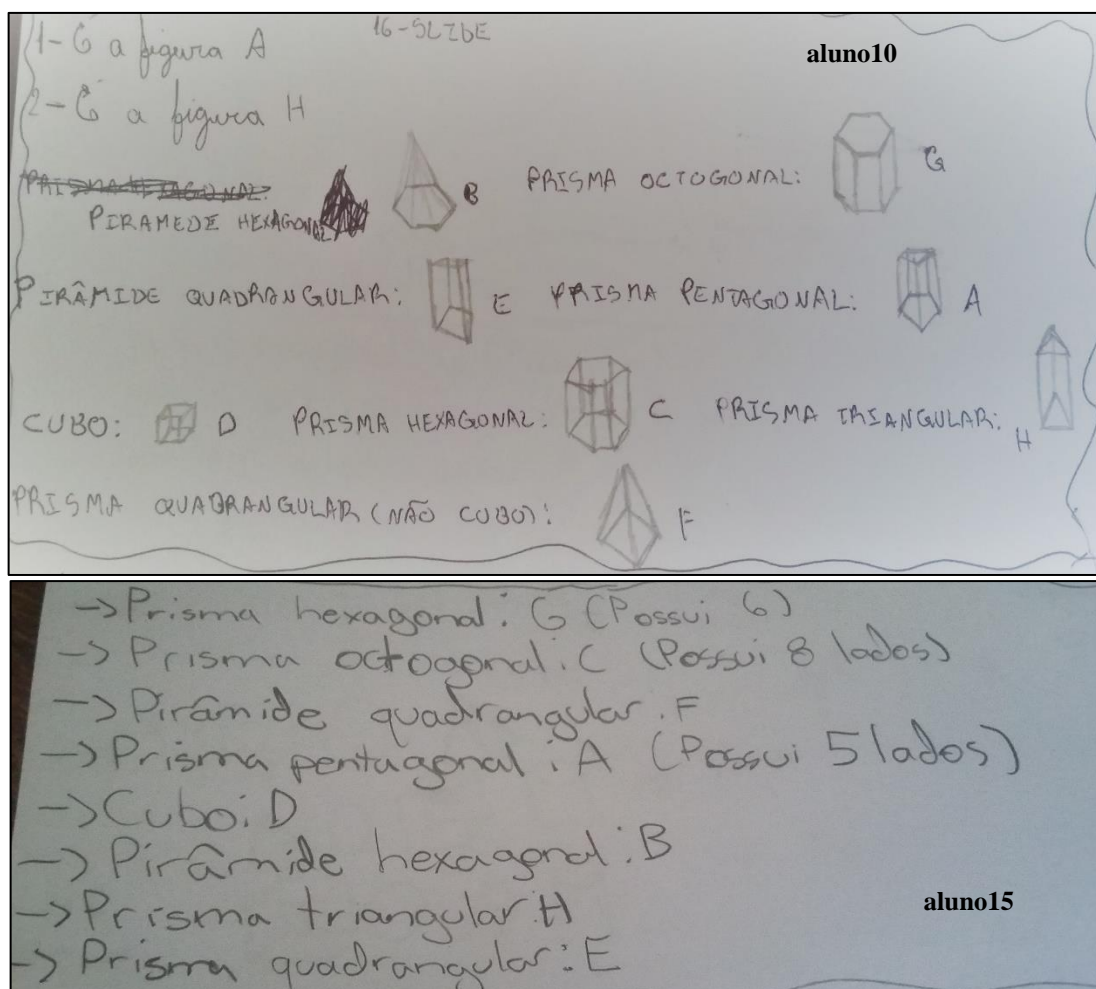 1- É a figura A
16-SLZbE
aluno10
2- É a figura H
B PRISMA OCTOGONAL: G
PIRAMEDE HEXAGONAL
PIRÂMIDE QUADRANGULAR: E PRISMA PENTAGONAL: A
CUBO: D PRISMA HEXAGONAL: C PRISMA TRIANGULAR: H
PRISMA QUADRANGULAR (NÃO CUBO): F
-> Prisma hexagonal: G (Possui 6)
-> Prisma octogonal: C (Possui 8 lados)
-> Pirâmide quadrangular: F
-> Prisma pentagonal: A (Possui 5 lados)
-> Cubo: D
-> Pirâmide hexagonal: B
-> Prisma triangular: H
aluno15
-> Prisma quadrangular: E